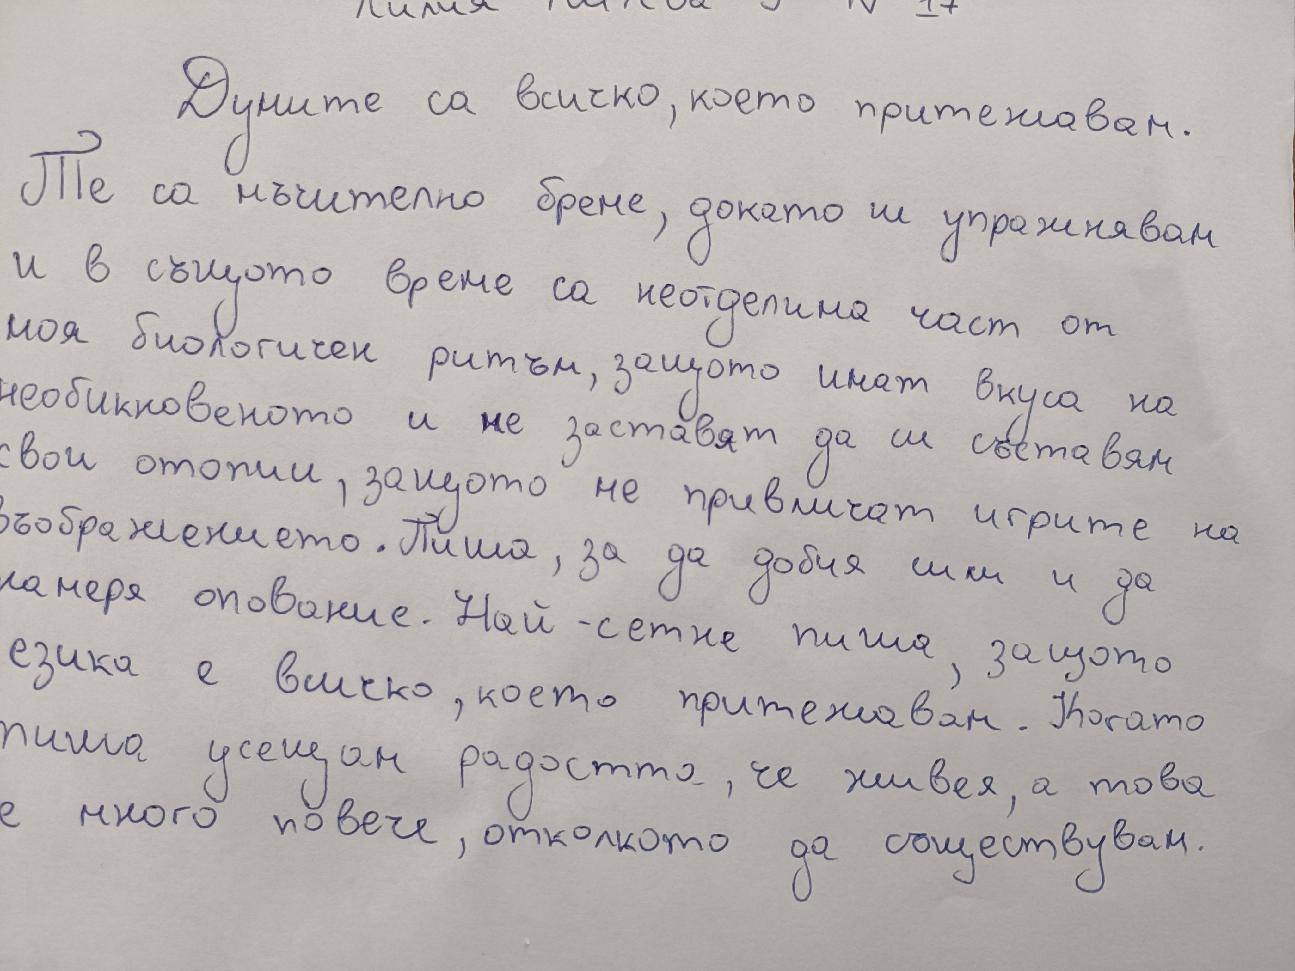 Лилия № 17
Думите са всичко, което притежавам.
Те са мъчително бреме, докато ги упражнявам
и в същото време са неотделима част от
моя биологичен ритъм, защото имат вкуса на
необикновеното и ме заставят да си съставям
свои утопии, защото ме привличат игрите на
въображението. Пиша, за да добия сили и да
намеря упование. Най-сетне пиша, защото
езика е всичко, което притежавам. Когато
пиша усещам радостта, че живея, а това
е много повече, отколкото да съществувам.